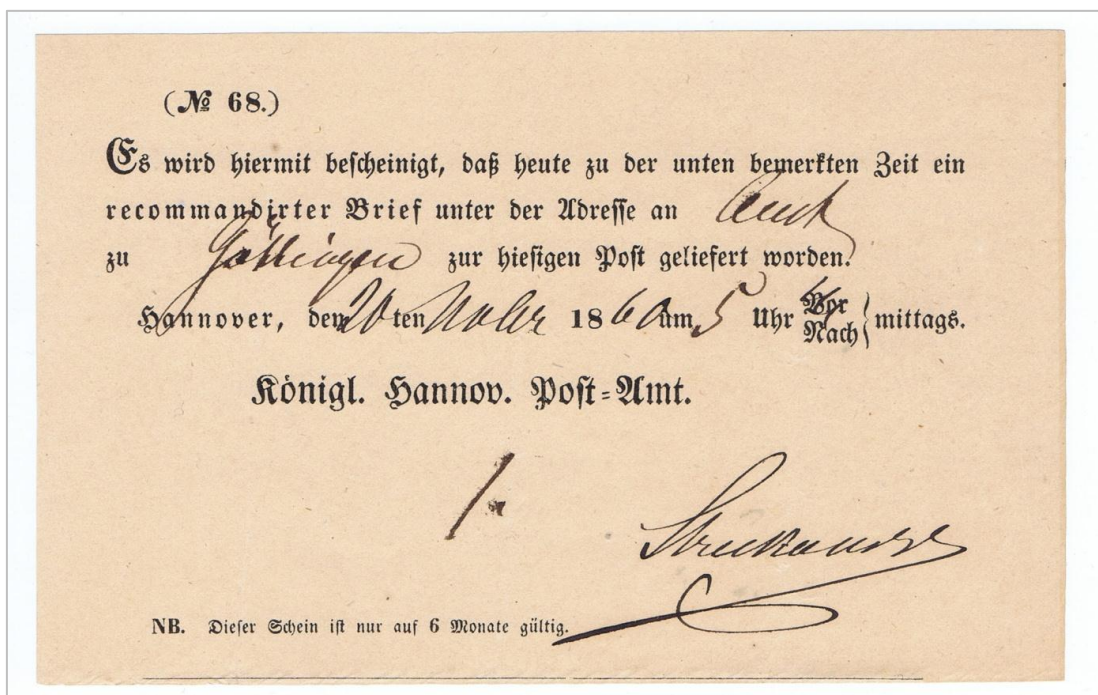 (№ 68.)
Es wird hiermit bescheinigt, daß heute zu der unten bemerkten Zeit ein
recommandirter Brief unter der Adresse an Amt
zu Göttingen zur hiesigen Post geliefert worden.
Hannover, den 20 ten Nobr 1860 um 5 Uhr Vor Nach } mittags.
Königl. Hannov. Post-Amt.
NB. Dieser Schein ist nur auf 6 Monate gültig.